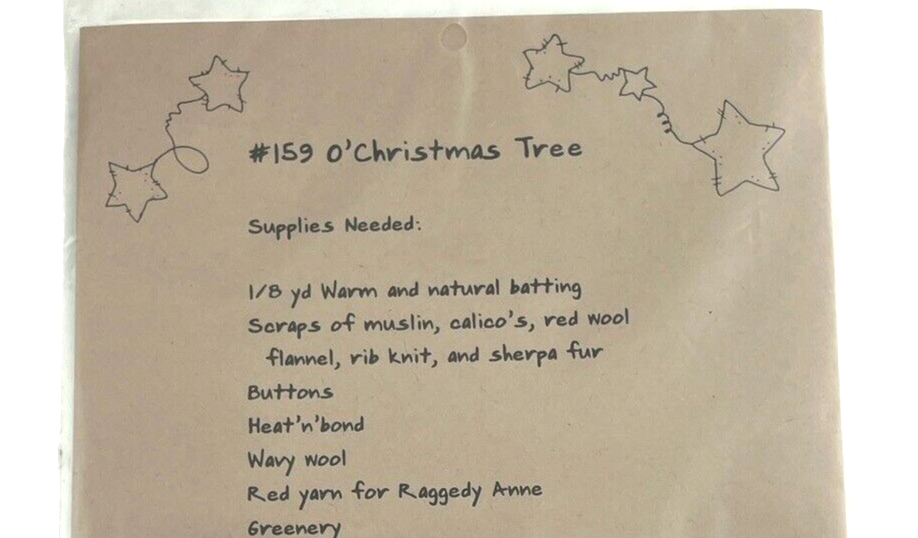 #159 O'Christmas Tree
Supplies Needed:
1/8 yd Warm and natural batting
Scraps of muslin, calico's, red wool
flannel, rib knit, and sherpa fur
Buttons
Heat'n'bond
Wavy wool
Red yarn for Raggedy Anne
Greenery